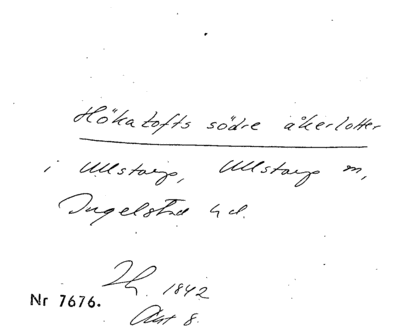 Hökatofts södre åkerlotter
i Ullstorp, Ullstorp m,
Ingelstad hd.
Ih. 1842
Nr 7676.
Akt 8.